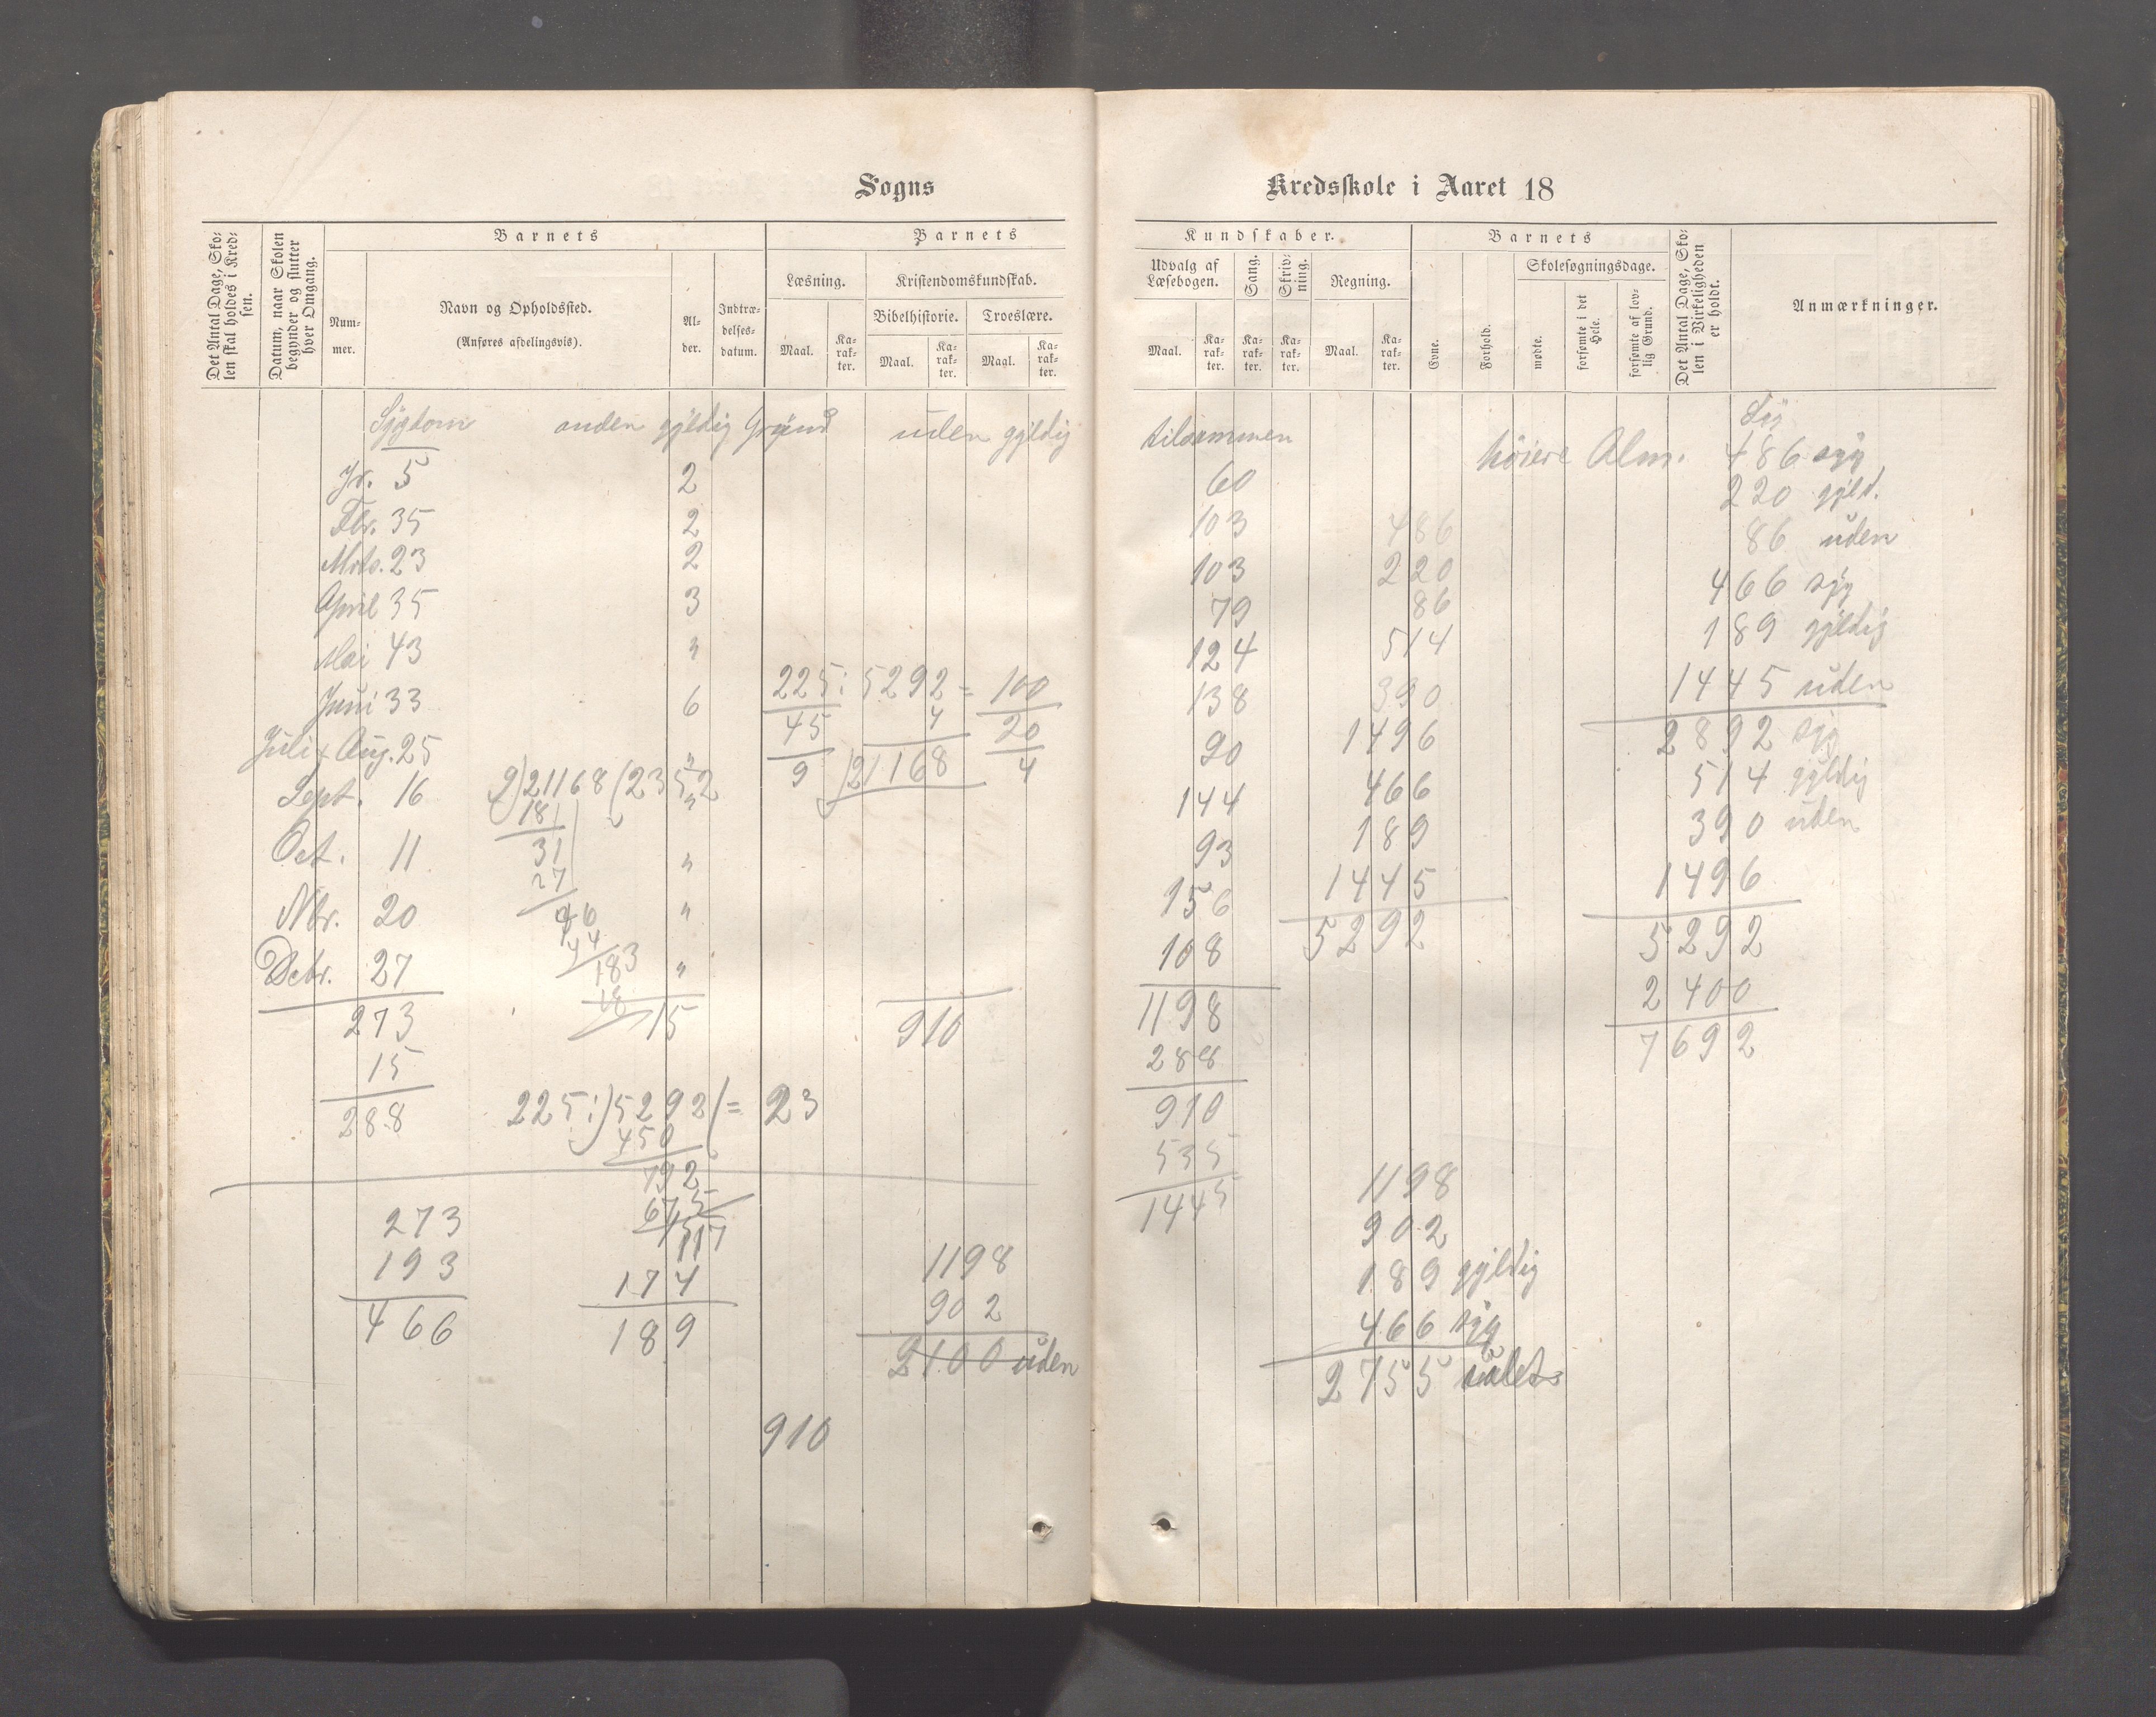 Sogns
Det Antal Dage, Sko-
len skal holdes i Kred-
sen.
Datum, naar Skolen
begynder og slutter
hver Omgang.
Barnets
Num-
mer.
Navn og Opholdssted.
(Anføres afdelingsvis).
Al-
der.
Indtræ-
delses-
datum.
Barnets
Læsning.
Kristendomskundskab.
Bibelhistorie.
Troeslære.
Maal.
Ka-
rak-
ter.
Maal.
Ka-
rak-
ter.
Maal.
Ka-
rak-
ter.
Sygdom anden gyldig Grund uden gyldig
Jr. 5 2
Fbr. 35 2
Mrts. 23 2
April 35 3
Mai 43 "
Juni 33 6
Juli & Aug. 25 "
Sept. 16 "
Oct. 11 "
Nbr. 20 "
Debr. 27 "
273 15 910
15
288
225 : 5292 = 100
45 4 20
9 21168 4
9)21168(2352
18
31
27
46
44
183
18
225:)5292(= 23
450
792
675
117
273
193
466
174
189
1198
902
2100 uden
910
Kredsskole i Aaret 18
Kundskaber.
Udvalg af
Læsebogen.
Sang.
Skriv-
ning.
Regning.
Maal.
Ka-
rak-
ter.
Ka-
rak-
ter.
Ka-
rak-
ter.
Maal.
Ka-
rak-
ter.
Barnets
Evne.
Forhold.
Skolesøgningsdage.
mødte.
forsømte i det
Hele.
forsømte af lov-
lig Grund.
Det Antal Dage, Sko-
len i Virkeligheden
er holdt.
Anmærkninger.
tilsammen
60
103
103
79
124
138
90
144
93
156
108
1198
288
910
535
1445
486
220
86
514
390
1496
466
189
1445
5292
1198
902
189 gyldig
466 syg
2755
høiere Alm. 486 syg
220 gyld.
86 uden
466 syg
189 gyldig
1445 uden
2892 syg
514 gyldig
390 uden
1496
5292
2400
7692